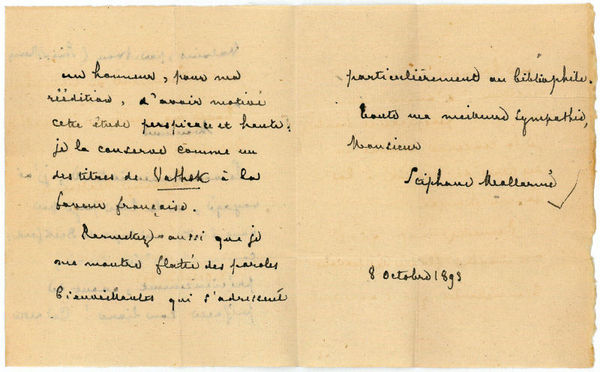 un honneur, pour ma
réédition, d'avoir motivé
cette étude perspicace et haute:
je la conserve comme un
des titres de Vathek à la
faveur française.
Permettez aussi que je
me montre flatté des paroles
bienveillantes qui s'adressent
particulièrement au bibliophile.
Toute ma meilleure sympathie,
Monsieur
Stéphane Mallarmé
8 Octobre 1893